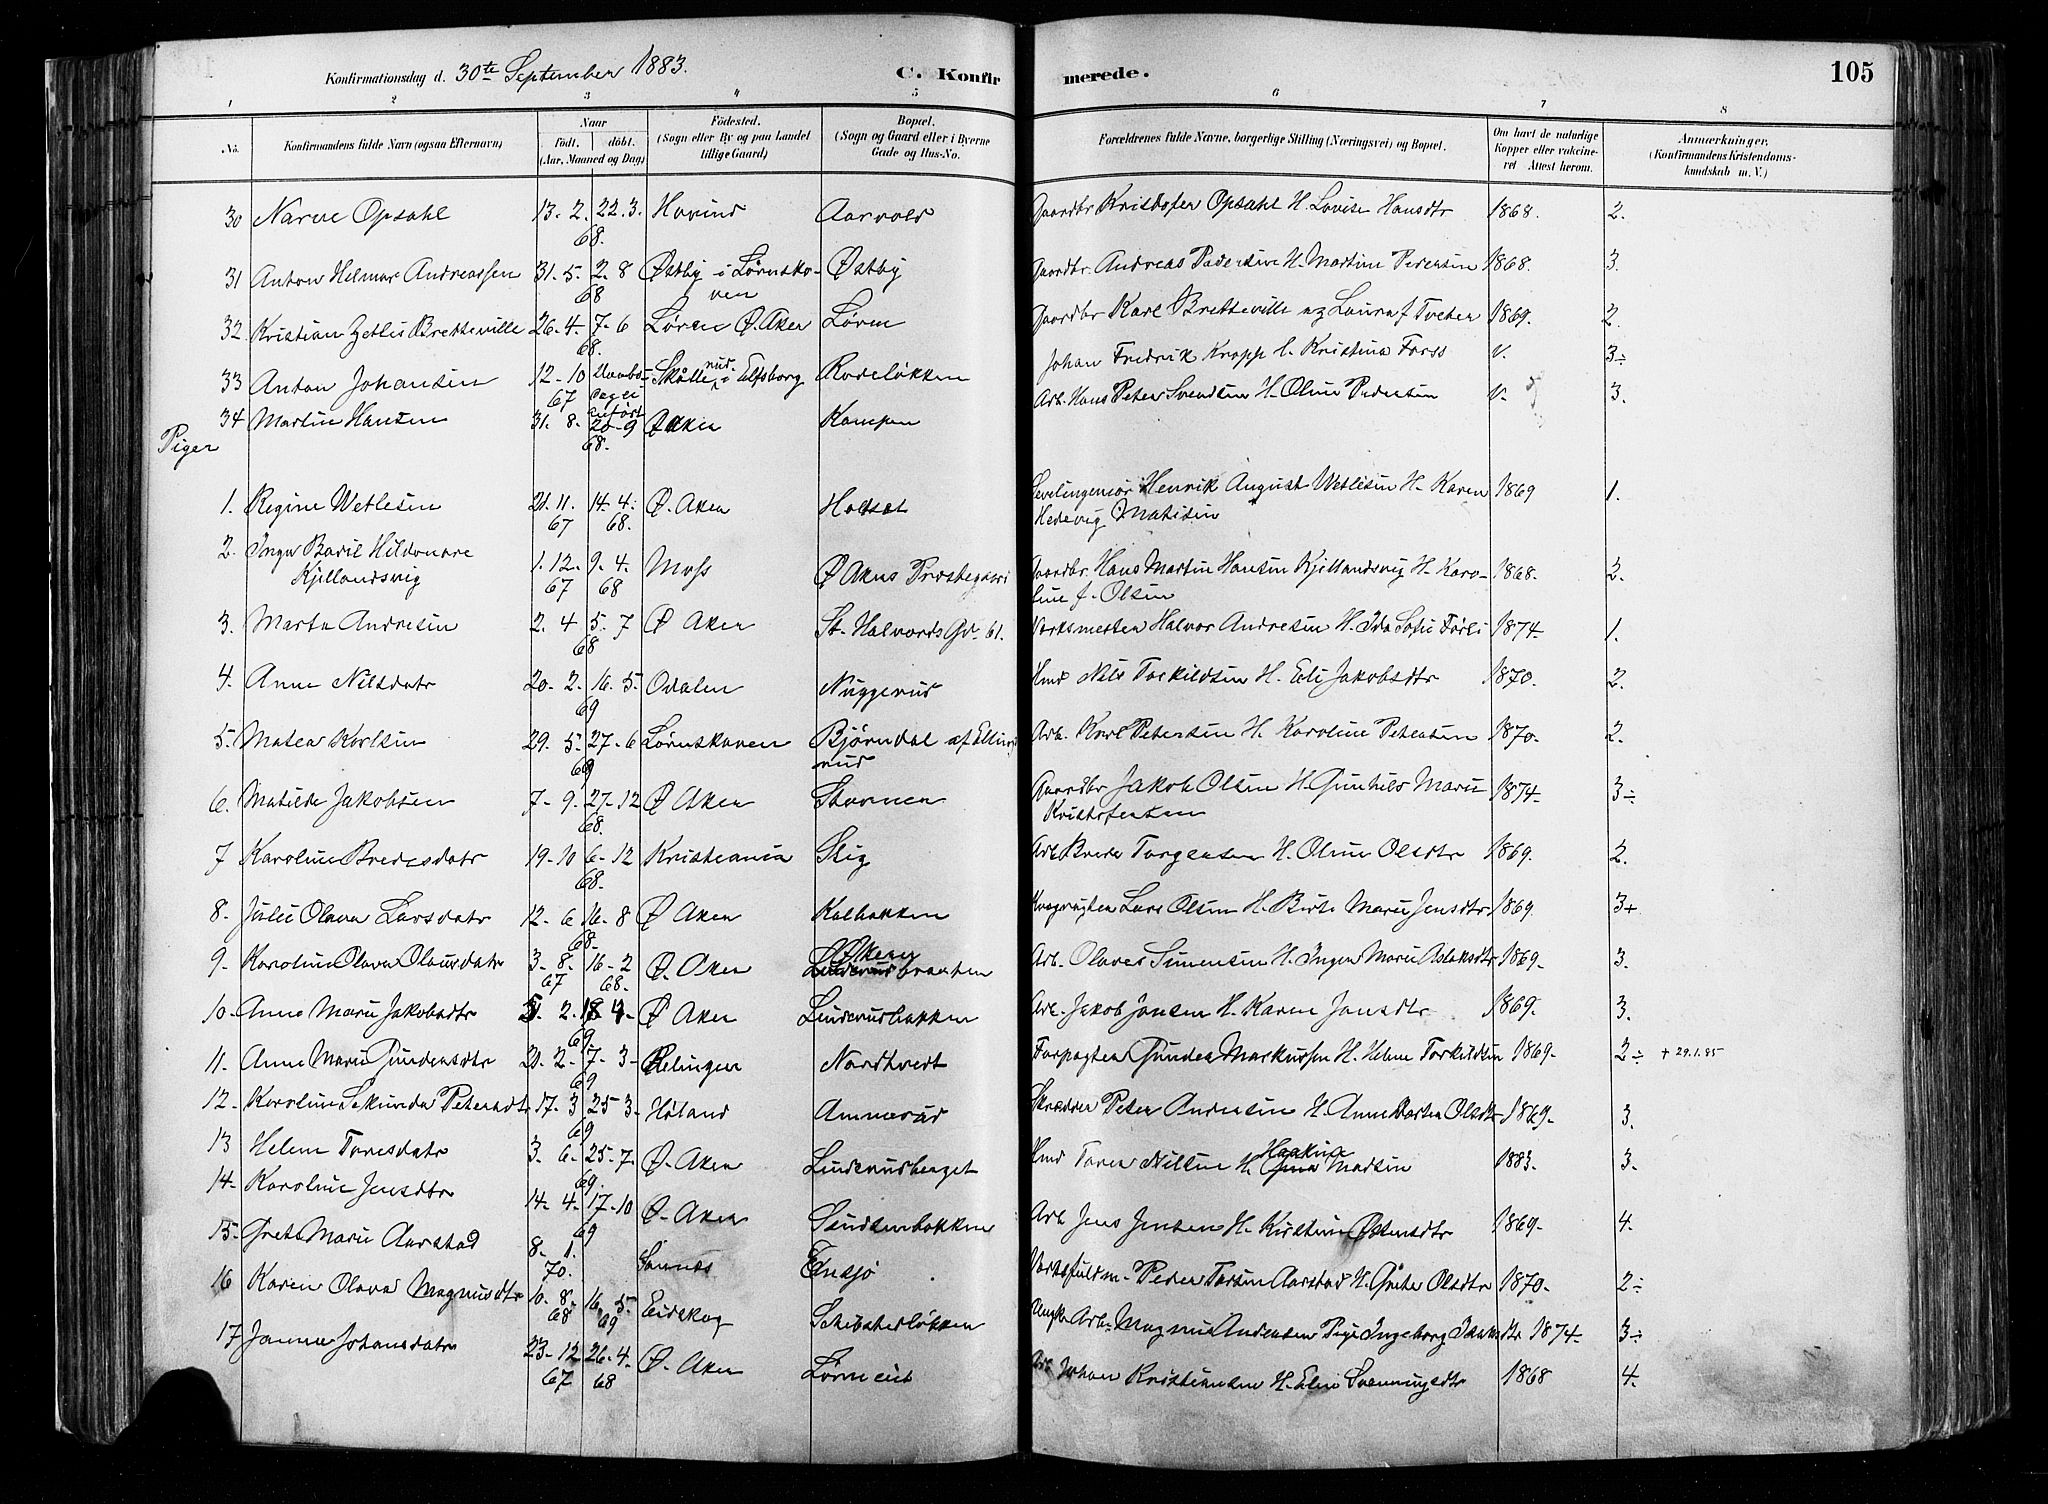 Konfirmationsdag d. 30te September 1883. C. Konfirmerede. 105
1 2 3 4 5 6 7 8
No. Konfirmandens fulde Navn (ogsaa Efternavn) Naar født. døbt. (Aar, Maaned og Dag) Fødested. (Sogn eller By og paa Landet tillige Gaard) Bopæl. (Sogn og Gaard eller i Byerne Gade og Hus-No. Forældrenes fulde Navne, borgerlige Stilling (Næringsvei) og Bopæl. Om havt de naturlige Kopper eller vakcineret Attest herom. Anmærkninger. (Konfirmandens Kristendomskundskab m. V.)
30 Narve Opsahl 13. 2. 22. 3. 68. Hovind Aarvold Gaardbr Kristofer Opsahl H. Lovise Hansdtr 1868. 2.
31 Anton Helmer Andreassen 31. 5. 2. 8 68 Østby i Lørnskoven Østby Gaardbr. Andreas Pedersen H. Martine Pedersen 1868. 3.
32. Kristian Zetlis Bretteville 26. 4. 7. 6 68. Løren Ø. Aker Løren Gaardbr Karl Bretteville og Laura f Tveter 1869. 2.
33 Anton Johansen 12-10 67 Elfsborg Rodeløkken Johan Fredrik Kropp Kristina Forss v. 3÷
34 Martin Hansen 31. 8. 20-9 68. Ø Aker Kampen Arb. Hans Peter Svendsen H. Oline Pedersen v. 3.
Piger
1. Regine Wetlesen 21. 11. 67 14. 4. 68. Ø. Aker Henrik August Wetlesen H. Karen Hedevig Matisen 1869 1.
2. Inger Baril Hildonare Kjellandsvig 1. 12. 67 9. 4. 68 Moss Ø Akers Prestegaard Gaardbr. Hans Martin Hansen Kjellandsvig H. Karoline f. Olsen 1868. 2.
3. Marta Andresen 2. 4 5. 7 68 Ø Aker St. Halvards Gd. 61. Verksmester Halvor Andresen H. Ida Sofie 1874. 1.
4. Anne Nilsdatr 20. 2. 16. 5. 69 Odalen Nuggerud Hmd Nils Torkildsen H. Eli Jakobsdtr 1870. 2.
5. Matea Karlsen 29. 5. 27. 6 69 Lørnskoven Bjørndal af Ellingsrud Arb. Karl Petersen H. Karoline Petersen 1870. 2.
6. Matilde Jakobsen 7. 9. 27-12 68. Ø Aker Stovner Gaardbr Jakob Olsen H. Gunhild Marie Kristofersen 1874. 3÷
7 Karoline Bredesdatr 19-10 6-12 68. Kristiania Stig Arb Brede Torgersen H. Oline Olsdtr 1869. 2.
8. Julie Olava Larsdatr 12. 6 16. 8 68. Ø Aker Kalbakken Lars Olsen H. Birte Marie Jensdtr 1869. 3+
9. Karoline Olava Olausdatr 3. 8. 67 16-2 68. Ø. Aker Ø Akern Linderudbraaten Arb. Olaves Simensen H. Inger Marie Aslaksdtr 1869. 3.
10. Anne Marie Jakobsdtr 2. 18 4. 69. Ø Aker Linderudbakken Arb. Jakob Jonsen H. Karen Jonsdtr 1869. 3.
11. Anne Marie Gundersdtr 21. 2. 7. 3. 69 Rælingen Nordtvedt Forpagter Gunder Markussen H. Helene Torkildsen 1869. 2÷ + 29.1.85
12. Karoline Sekunda Petersdtr 17. 3 25. 3. 69 Høland Ammerud Skrædder Peter Andersen H. Anne Marten Olsdtr 1869. 3.
13 Helene Toresdatr 3. 6. 25. 7. 69. Ø. Aker Linderudberget Hmd Tore Nilsen H. Haakine Madsen 1883. 3.
14. Karoline Jensdtr 14. 4. 17-10 69 Ø. Aker Sinsenbakken Arb. Jens Jensen H. Kirstine Østensdtr 1869. 4.
15. Grete Marie Aarstad 8. 1. 70. Sannes Ensjø Verksfuldm. Peder Tarsen Aarstad H. Grete Olsdtr 1870. 2÷
16 Karen Olava Magnusdtr 10. 8. 68 16. 5. 69 Eidskog Schibstedløkken Ungk. Arb. Magnus Andersen Pige Ingeborg 1874. 3÷
17 Janna Johansdatr 23. 12 67 26. 4. 68 Ø. Aker Arb Johan Kristiansen H. Elen Svenningsdtr 1868 4.